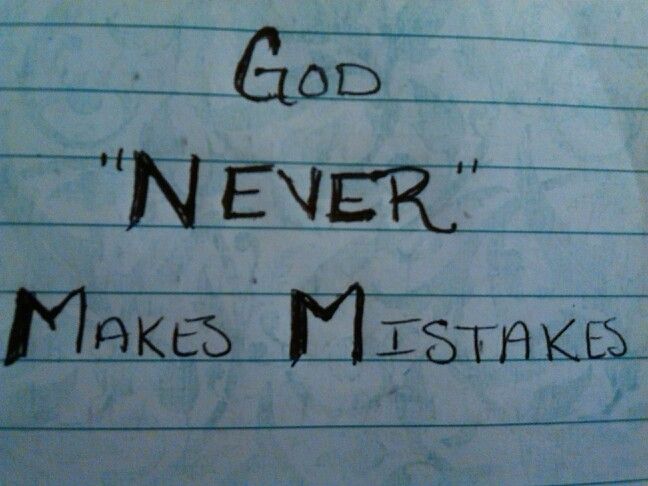 GOD
"NEVER"
MAKES MISTAKES